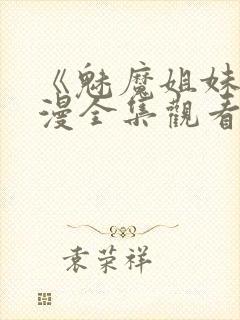 《魅魔姐妹
漫全集觀看
袁荣祥